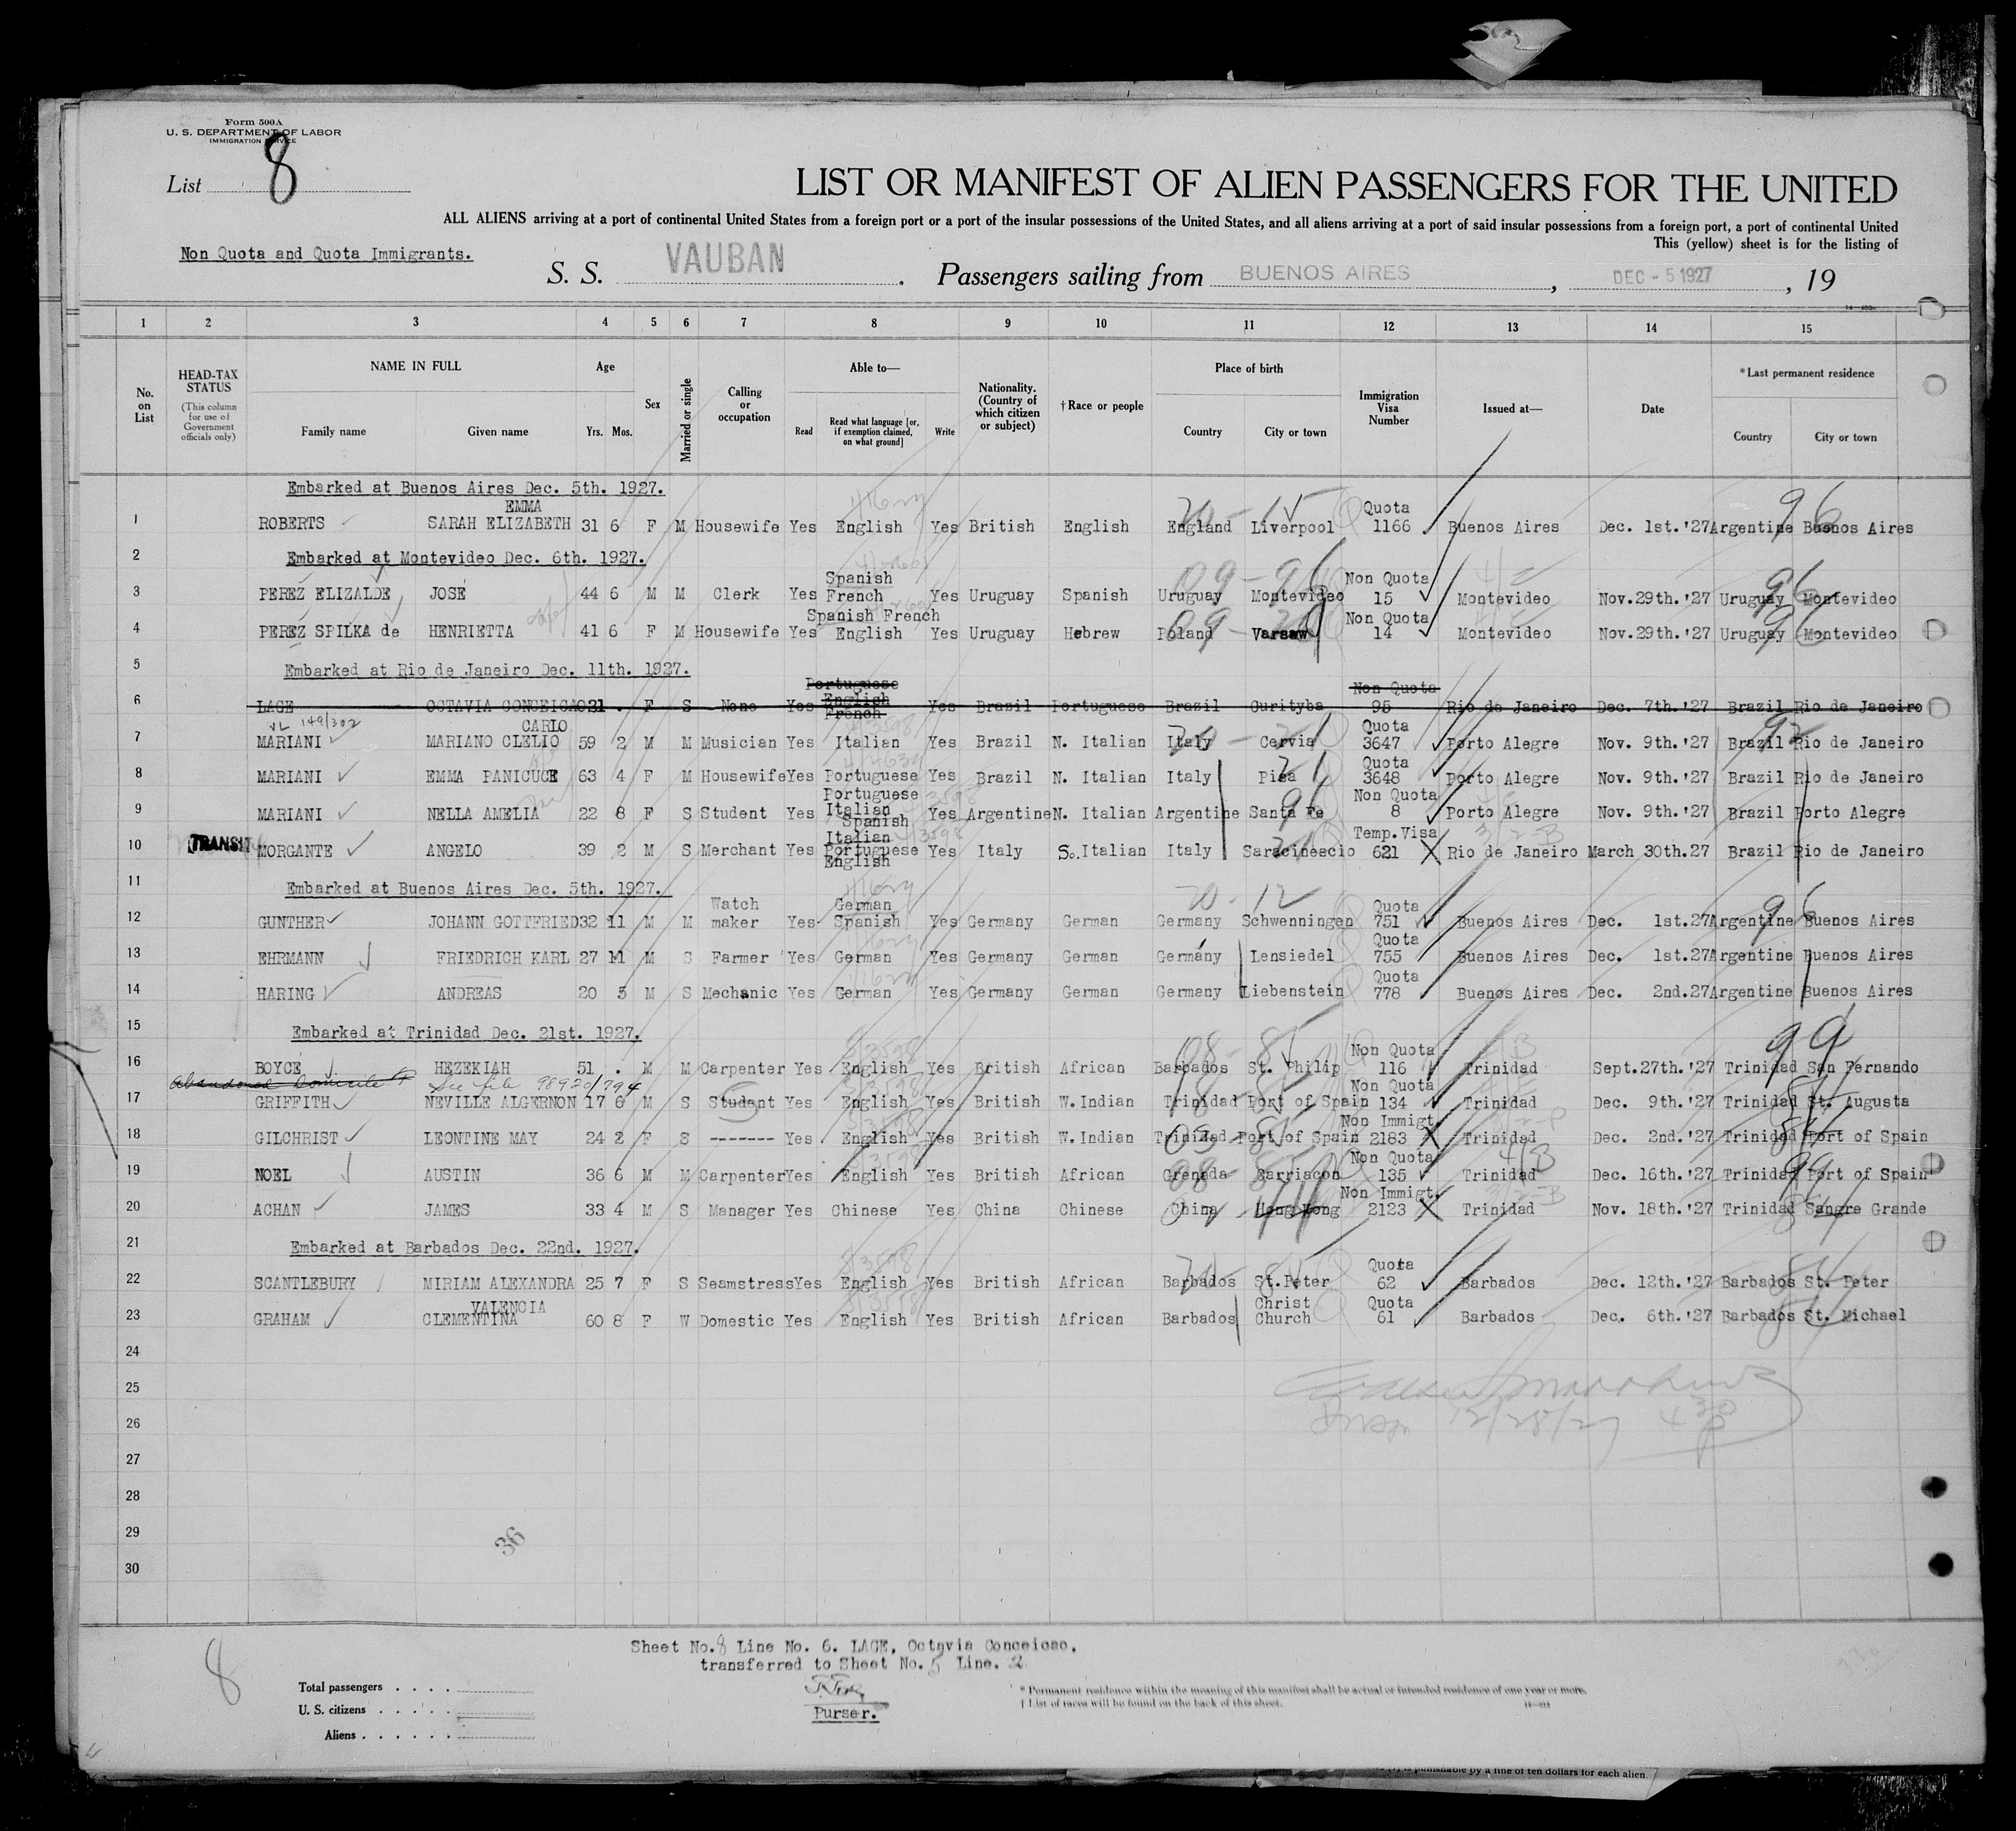 Form 500A
U. S. DEPARTMENT OF LABOR
IMMIGRATION SERVICE
List 8
LIST OR MANIFEST OF ALIEN PASSENGERS FOR THE UNITED
ALL ALIENS arriving at a port of continental United States from a foreign port or a port of the insular possessions of the United States, and all aliens arriving at a port of said insular possessions from a foreign port, a port of continental United
This (yellow) sheet is for the listing of
Non Quota and Quota Immigrants.
S. S. VAUBAN. Passengers sailing from BUENOS AIRES, DEC - 5 1927, 19
1 2 3 4 5 6 7 8 9 10 11 12 13 14 15
No. on List
HEAD-TAX STATUS
(This column for use of Government officials only)
NAME IN FULL
Family name Given name
Age
Yrs. Mos.
Sex
Married or single
Calling or occupation
Able to—
Read Read what language [or, if exemption claimed, on what ground] Write
Nationality. (Country of which citizen or subject)
†Race or people
Place of birth
Country City or town
Immigration Visa Number
Issued at—
Date
*Last permanent residence
Country City or town
Embarked at Buenos Aires Dec. 5th. 1927.
EMMA Quota
1 ROBERTS SARAH ELIZABETH 31 6 F M Housewife Yes English Yes British English England Liverpool 1166 Buenos Aires Dec. 1st.'27 Argentine Buenos Aires
2 Embarked at Montevideo Dec. 6th. 1927.
Spanish Non Quota
3 PEREZ ELIZALDE JOSE 44 6 M M Clerk Yes French Yes Uruguay Spanish Uruguay Montevideo 15 Montevideo Nov.29th.'27 Uruguay Montevideo
Spanish French Non Quota
4 PEREZ SPILKA de HENRIETTA 41 6 F M Housewife Yes English Yes Uruguay Hebrew Poland Varsaw 14 Montevideo Nov.29th.'27 Uruguay Montevideo
5 Embarked at Rio de Janeiro Dec. 11th. 1927.
Portuguese Non Quota
English
6 LAGE OCTAVIA CONCEICAO 21 . F S None Yes French Yes Brazil Portuguese Brazil Curityba 95 Rio de Janeiro Dec. 7th.'27 Brazil Rio de Janeiro
VL 149/302 CARLO Quota
7 MARIANI MARIANO CLELIO 59 2 M M Musician Yes Italian Yes Brazil N. Italian Italy Cervia 3647 Porto Alegre Nov. 9th.'27 Brazil Rio de Janeiro
Quota
8 MARIANI EMMA PANICUCE 63 4 F M Housewife Yes Portuguese Yes Brazil N. Italian Italy Pisa 3648 Porto Alegre Nov. 9th.'27 Brazil Rio de Janeiro
Portuguese Non Quota
Italian
9 MARIANI NELLA AMELIA 22 8 F S Student Yes Spanish Yes Argentine N. Italian Argentine Santa Fe 8 Porto Alegre Nov. 9th.'27 Brazil Porto Alegre
Italian Temp.Visa
10 TRANSIT MORGANTE ANGELO 39 2 M S Merchant Yes Portuguese Yes Italy So.Italian Italy Saracinescio 621 Rio de Janeiro March 30th.27 Brazil Rio de Janeiro
English
11 Embarked at Buenos Aires Dec. 5th. 1927.
Watch German Quota
12 GUNTHER JOHANN GOTTFRIED 32 11 M M maker Yes Spanish Yes Germany German Germany Schwenningen 751 Buenos Aires Dec. 1st.27 Argentine Buenos Aires
Quota
13 EHRMANN FRIEDRICH KARL 27 11 M S Farmer Yes German Yes Germany German Germany Lensiedel 755 Buenos Aires Dec. 1st.27 Argentine Buenos Aires
Quota
14 HARING ANDREAS 20 5 M S Mechanic Yes German Yes Germany German Germany Liebenstein 778 Buenos Aires Dec. 2nd.27 Argentine Buenos Aires
15 Embarked at Trinidad Dec. 21st. 1927.
Non Quota
16 BOYCE HEZEKIAH 51 . M M Carpenter Yes English Yes British African Barbados St. Philip 116 Trinidad Sept.27th.'27 Trinidad San Fernando
Abandoned Domicile See file 98920/794 Non Quota
17 GRIFFITH NEVILLE ALGERNON 17 6 M S Student Yes English Yes British W.Indian Trinidad Port of Spain 134 Trinidad Dec. 9th.'27 Trinidad St. Augusta
Non Immigt.
18 GILCHRIST LEONTINE MAY 24 2 F S ------- Yes English Yes British W.Indian Trinidad Port of Spain 2183 Trinidad Dec. 2nd.'27 Trinidad Port of Spain
Non Quota
19 NOEL AUSTIN 36 6 M M Carpenter Yes English Yes British African Grenada Carriacou 135 Trinidad Dec. 16th.'27 Trinidad Port of Spain
Non Immigt.
20 ACHAN JAMES 33 4 M S Manager Yes Chinese Yes China Chinese China Hong Kong 2123 Trinidad Nov. 18th.'27 Trinidad Sangre Grande
21 Embarked at Barbados Dec. 22nd. 1927.
Quota
22 SCANTLEBURY MIRIAM ALEXANDRA 25 7 F S Seamstress Yes English Yes British African Barbados St.Peter 62 Barbados Dec. 12th.'27 Barbados St. Peter
VALENCIA Christ Quota
23 GRAHAM CLEMENTINA 60 8 F W Domestic Yes English Yes British African Barbados Church 61 Barbados Dec. 6th.'27 Barbados St. Michael
24
25
26 12/28/27 4 30 P
27
28
29
36
30
Sheet No.8 Line No. 6. LAGE, Octavia Conceicao,
transferred to Sheet No. 5 Line. 2
8
Total passengers . . . .
U. S. citizens . . . . .
Aliens . . . . . .
Purser.
* Permanent residence within the meaning of this manifest shall be actual or intended residence of one year or more.
† List of races will be found on the back of this sheet.
is punishable by a fine of ten dollars for each alien.